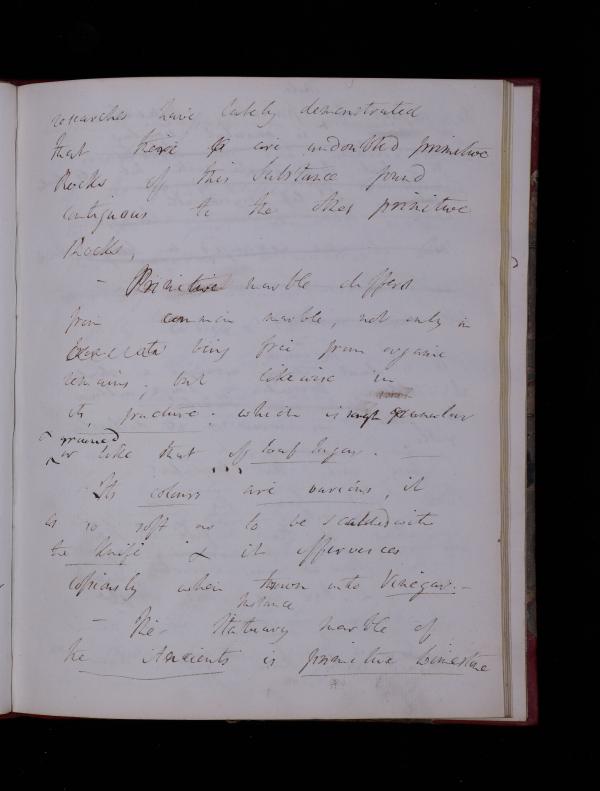 researches have lately demonstrated
that there are undoubted primitive
Rocks of this substance found
contiguous to the other primitive
Rocks,
- Primitive marble differs
from common marble, not only in
being free from organic
remains; but likewise in
its fracture; which is rough granular
grained
or like that of loaf sugar. -
Its colours are various, it
is so soft as to be scratched with
the Knife & it effervesces
copiously when thrown into Vinegar. -
- The Statuary marble of
the Ancients is primitive Limestone